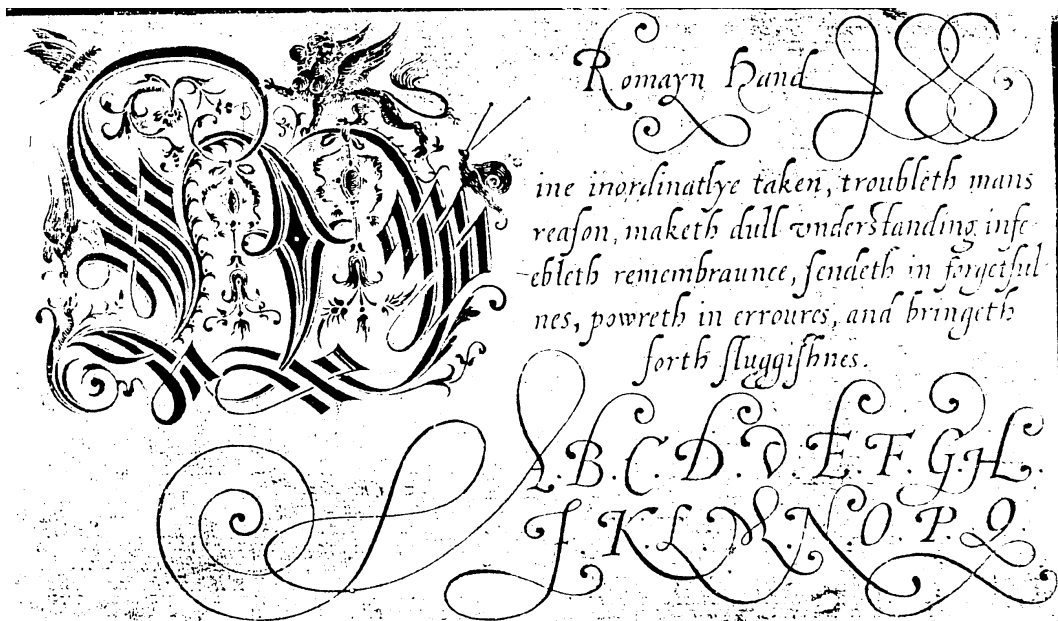 Romayn Hand
Wine inordinatlye taken, troubleth mans
reaſon, maketh dull vnderſtanding, infe-
ebleth remembraunce, ſendeth in forgetful-
nes, powreth in erroures, and bringeth
forth ſluggiſhnes.
A. B. C. D. D. E. F. G. H.
J. K. L. M. N. O. P. Q.